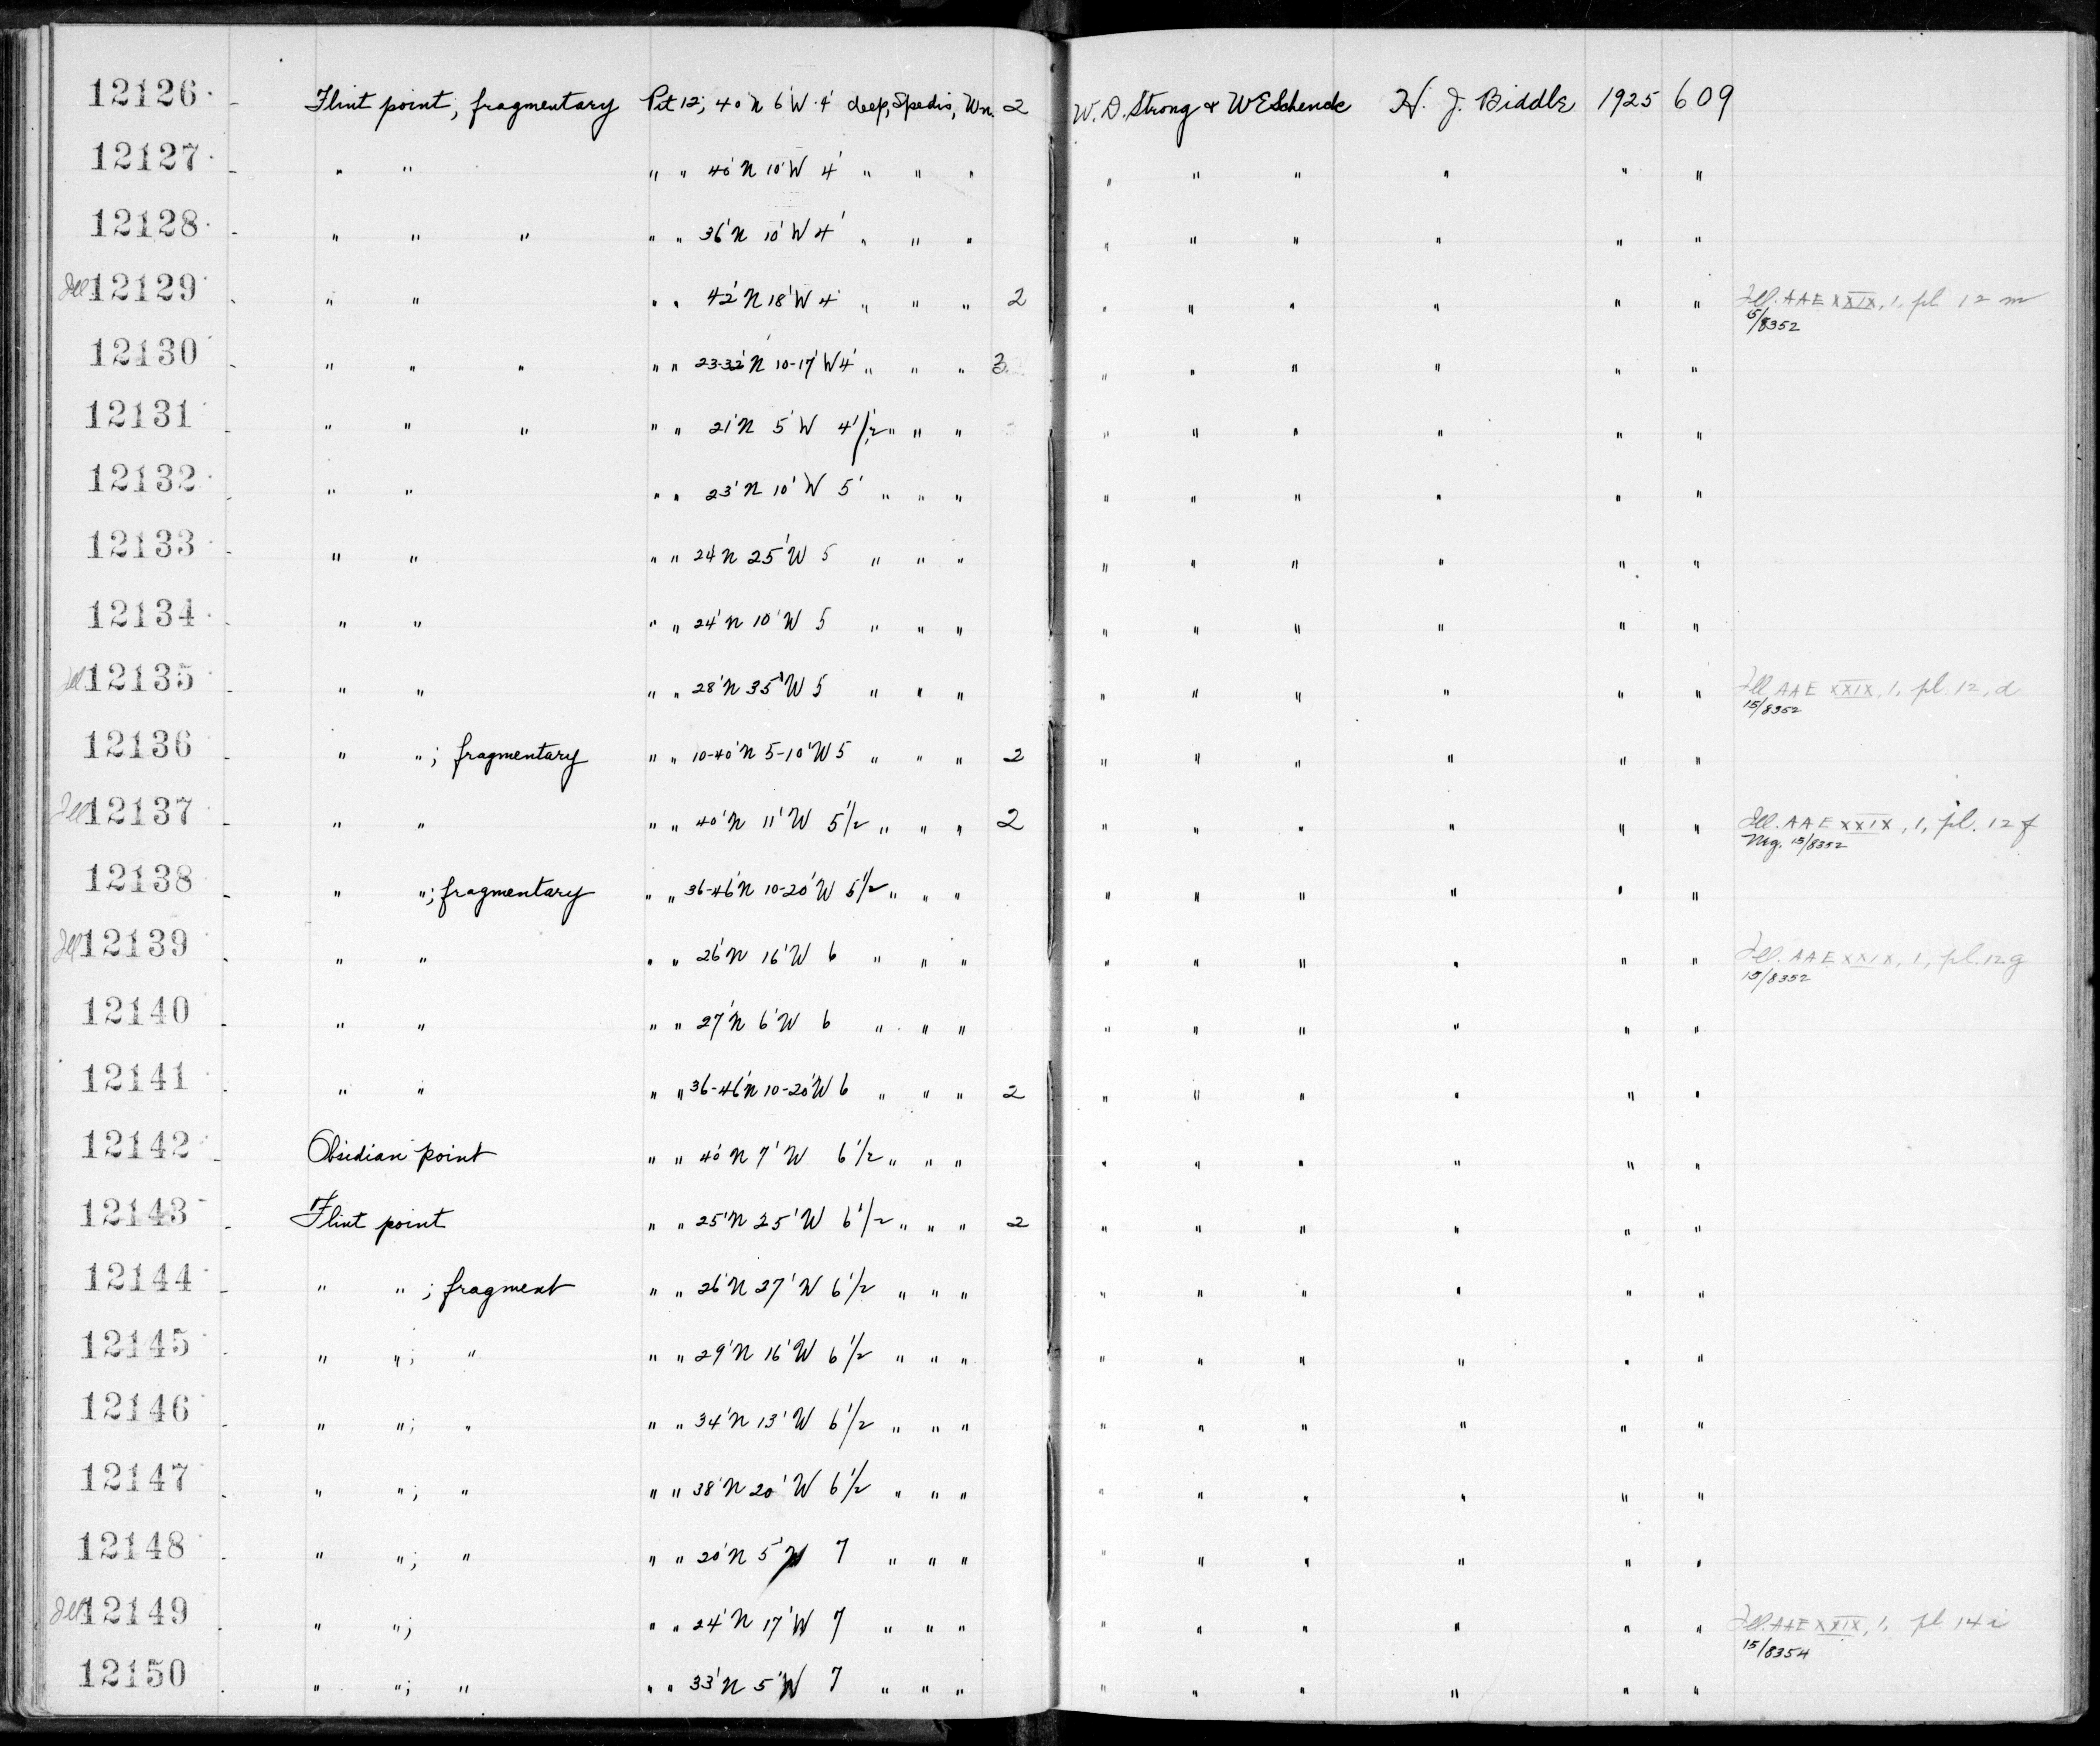 12126 Flint point, fragmentary Pit 12; 40'N 6'W 4' deep, Spedis, Wn. 2 W. D. Strong & W E Schenck H. J. Biddle 1925 609
12127 " " " " 40'N 10'W 4' " " " " " " " " "
12128 " " " " " 36'N 10'W 4' " " " " " " " " "
Ill 12129 " " " " 42'N 18'W 4' " " " 2 " " " " " " Ill. AAE XXIX, 1, pl 12 m
15/8352
12130 " " " " " 23-32'N 10-17'W 4' " " " 3 " " " " " "
12131 " " " " " 21'N 5'W 4 1/2' " " " " " " " " "
12132 " " " " 23'N 10'W 5' " " " " " " " " "
12133 " " " " 24'N 25'W 5 " " " " " " " " "
12134 " " " " 24'N 10'W 5 " " " " " " " " "
Ill 12135 " " " " 28'N 35'W 5 " " " " " " " " " Ill AAE XXIX, 1, pl. 12, d
15/8352
12136 " "; fragmentary " " 10-40'N 5-10'W 5 " " " 2 " " " " " "
Ill 12137 " " " " 40'N 11'W 5 1/2 " " " 2 " " " " " " Ill. AAE XXIX, 1, pl. 12 f
Neg. 15/8352
12138 " "; fragmentary " " 36-46'N 10-20'W 5 1/2 " " " " " " " " "
Ill 12139 " " " " 26'N 16'W 6 " " " " " " " " " Ill. AAE XXIX, 1, pl. 12 g
15/8352
12140 " " " " 27'N 6'W 6 " " " " " " " " "
12141 " " " " 36-46'N 10-20'W 6 " " " 2 " " " " " "
12142 Obsidian point " " 40'N 7'W 6 1/2 " " " " " " " " "
12143 Flint point " " 25'N 25'W 6 1/2 " " " 2 " " " " " "
12144 " "; fragment " " 26'N 27'W 6 1/2 " " " " " " " " "
12145 " "; " " " 29'N 16'W 6 1/2 " " " " " " " " "
12146 " "; " " " 34'N 13'W 6 1/2 " " " " " " " " "
12147 " "; " " " 38'N 20'W 6 1/2 " " " " " " " " "
12148 " "; " " " 20'N 5'W 7 " " " " " " " " "
Ill 12149 " "; " " 24'N 17'W 7 " " " " " " " " " Ill. AAE XXIX, 1, pl 14 i
15/8354
12150 " "; " " " 33'N 5'W 7 " " " " " " " " "